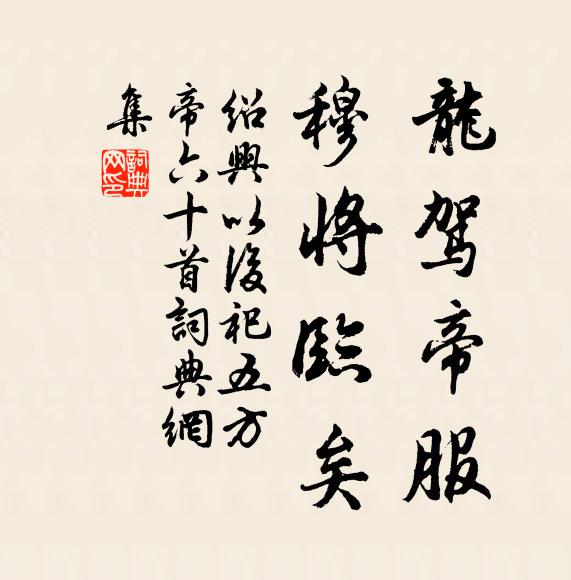 龍駕帝服
穆將臨矣
紹興以後祀五方
帝六十首詞典網
集
詞典網印